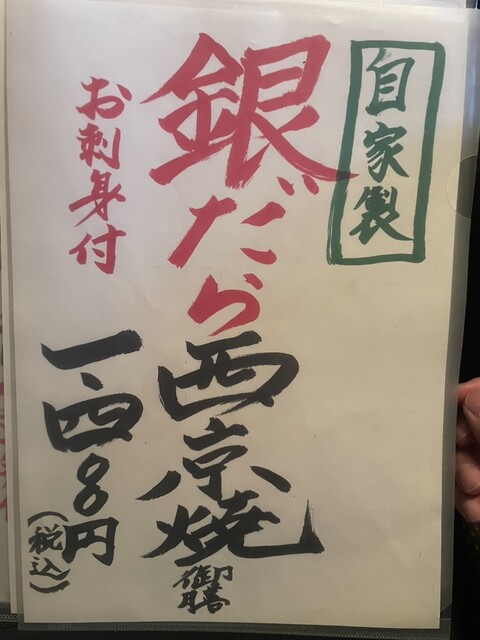 自家製
銀だら西京焼御膳
お刺身付
一、四〇〇円(税込)